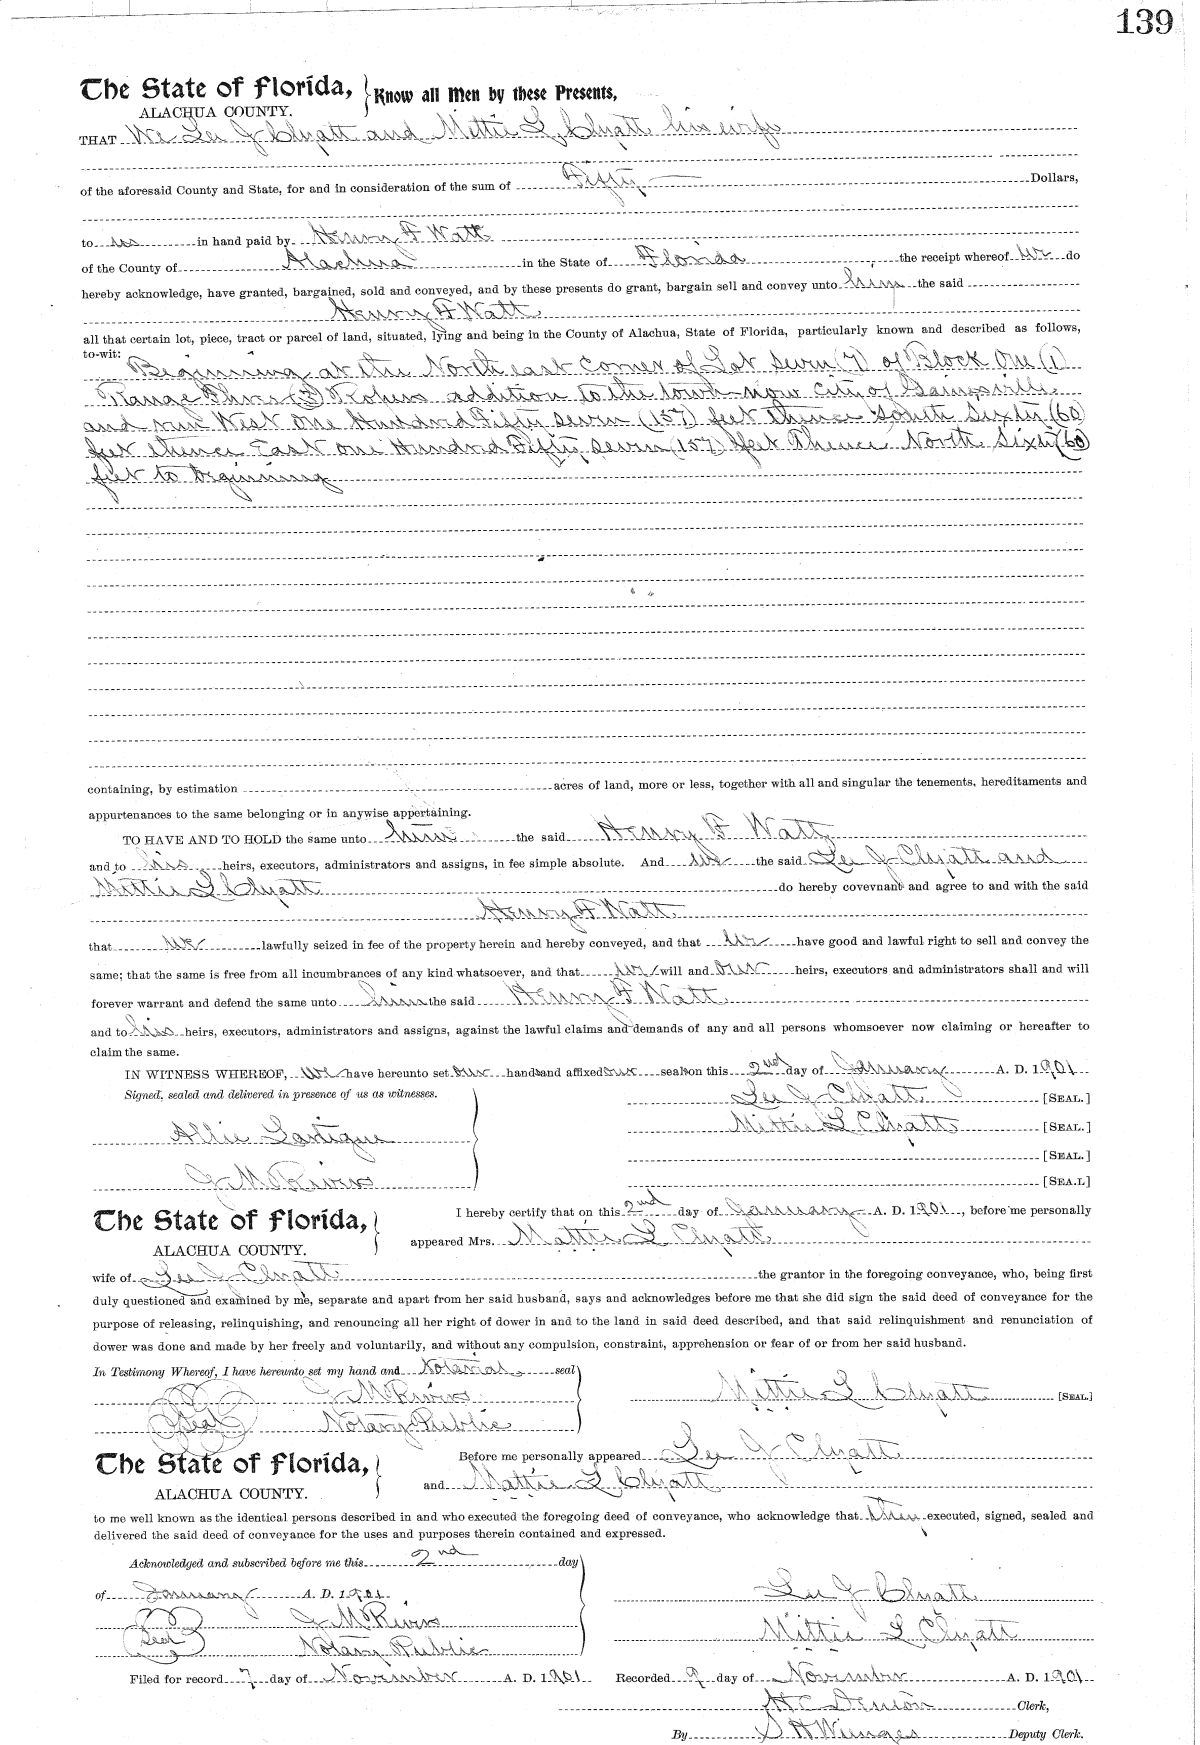 139
The State of Florida, Know all Men by these Presents,
ALACHUA COUNTY.
THAT We Lee J Clyatt and Mittie L Clyatt his wife
of the aforesaid County and State, for and in consideration of the sum of Fifty Dollars,
to us in hand paid by Henry F Watt
of the County of Alachua in the State of Florida the receipt whereof we do
hereby acknowledge, have granted, bargained, sold and conveyed, and by these presents do grant, bargain sell and convey unto him the said
Henry F Watt
all that certain lot, piece, tract or parcel of land, situated, lying and being in the County of Alachua, State of Florida, particularly known and described as follows,
to-wit:
Beginning at the North east corner of Lot Seven (7) of Block One (1)
Range Three (3) addition to the town now city of Gainesville
and run West One Hundred Fifty seven (157) feet thence South Sixty (60)
feet thence East one Hundred Fifty seven (157) feet Thence North Sixty (60)
feet to beginning
containing, by estimation acres of land, more or less, together with all and singular the tenements, hereditaments and
appurtenances to the same belonging or in anywise appertaining.
TO HAVE AND TO HOLD the same unto him the said Henry F Watt
and to his heirs, executors, administrators and assigns, in fee simple absolute. And we the said Lee J Clyatt and
Mittie L Clyatt do hereby covevnant and agree to and with the said
Henry F Watt
that we lawfully seized in fee of the property herein and hereby conveyed, and that we have good and lawful right to sell and convey the
same; that the same is free from all incumbrances of any kind whatsoever, and that we will and our heirs, executors and administrators shall and will
forever warrant and defend the same unto him the said Henry F Watt
and to his heirs, executors, administrators and assigns, against the lawful claims and demands of any and all persons whomsoever now claiming or hereafter to
claim the same.
IN WITNESS WHEREOF, we have hereunto set our hands and affixed our seals on this 2nd day of January A. D. 1901
Signed, sealed and delivered in presence of us as witnesses. Lee J Clyatt [SEAL.]
Mittie L Clyatt [SEAL.]
Allie Lartigue
[SEAL.]
J M Rivers [SEAL]
The State of Florida, I hereby certify that on this 2nd day of January A. D. 1901, before me personally
ALACHUA COUNTY. appeared Mrs. Mattie L Clyatt
wife of Lee J Clyatt the grantor in the foregoing conveyance, who, being first
duly questioned and examined by me, separate and apart from her said husband, says and acknowledges before me that she did sign the said deed of conveyance for the
purpose of releasing, relinquishing, and renouncing all her right of dower in and to the land in said deed described, and that said relinquishment and renunciation of
dower was done and made by her freely and voluntarily, and without any compulsion, constraint, apprehension or fear of or from her said husband.
In Testimony Whereof, I have hereunto set my hand and Notarial seal
J M Rivers Mittie L Clyatt [SEAL]
Seal Notary Public
The State of Florida, Before me personally appeared Lee J Clyatt
ALACHUA COUNTY. and Mattie L Clyatt
to me well known as the identical persons described in and who executed the foregoing deed of conveyance, who acknowledge that they executed, signed, sealed and
delivered the said deed of conveyance for the uses and purposes therein contained and expressed.
Acknowledged and subscribed before me this 2nd day
of January A. D. 1901 Lee J Clyatt
J M Rivers
Seal Notary Public Mittie L Clyatt
Filed for record 7 day of November A. D. 1901 Recorded 9 day of November A. D. 1901
H C Denton Clerk,
By S H Wienges Deputy Clerk.